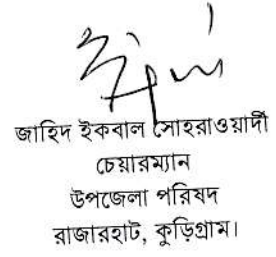 জাহিদ ইকবাল সোহরাওয়ার্দী
চেয়ারম্যান
উপজেলা পরিষদ
রাজারহাট, কুড়িগ্রাম।